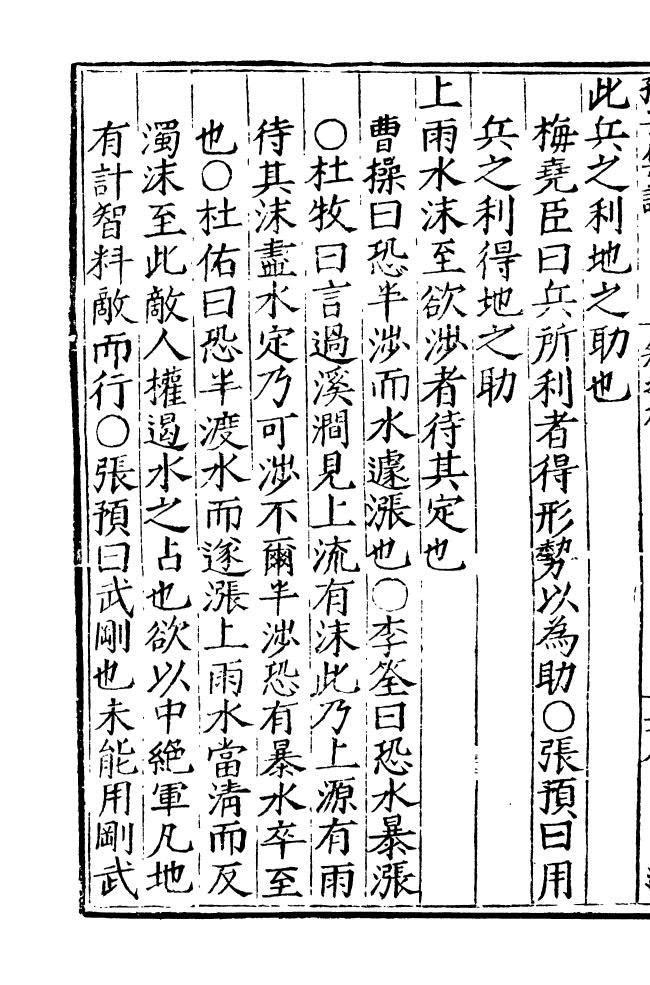 此兵之利地之助也
梅堯臣曰兵所利者得形勢以為助○張預曰用
兵之利得地之助
上雨水沫至欲涉者待其定也
曹操曰恐半涉而水遽漲也○李筌曰恐水暴漲
○杜牧曰言過溪澗見上流有沫此乃上源有雨
待其沫盡水定乃可涉不爾半涉恐有暴水卒至
也○杜佑曰恐半渡水而遂漲上雨水當清而反
濁沫至此敵人權遏水之占也欲以中絕軍凡地
有計智料敵而行○張預曰武剛也未能用剛武